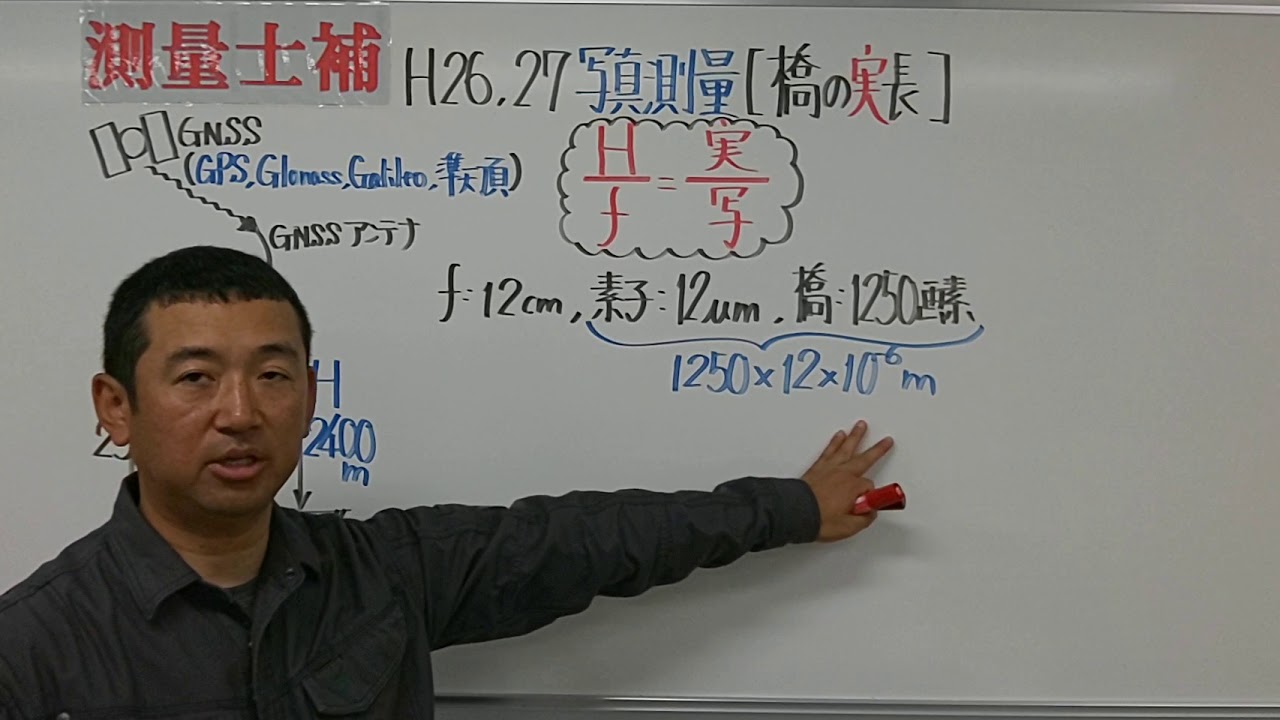 測量士補
H26,27写真測量[橋の実長]
GNSS
(GPS,Glonass,Galileo,準天頂)
H/f=実/写
GNSSアンテナ
f:12cm,素子:12μm,橋:1250画素
1250×12×10⁻⁶m
H
2400
m